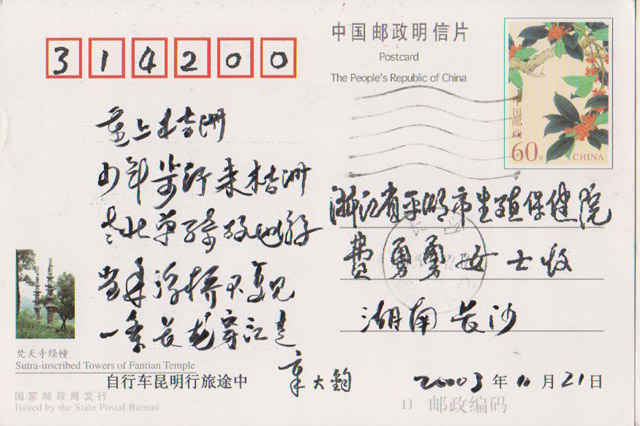 314200
中国邮政明信片
Postcard
The People's Republic of China
中国邮政
60分
CHINA
重上桔洲
少年步行来桔洲
老来单骑故地游
当年浮桥不复见
一条长龙穿江走
章大钧
浙江省平湖市生殖保健院
费勇勇女士收
湖南长沙
梵天寺经幢
Sutra-inscribed Towers of Fantian Temple
自行车昆明行旅途中
2003年10月21日
国家邮政局发行
Issued by the State Postal Bureau
邮政编码